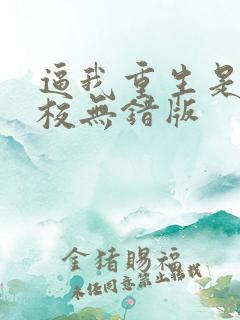 逼我重生是
校無錯版
金猪賜福
未经同意禁止转载